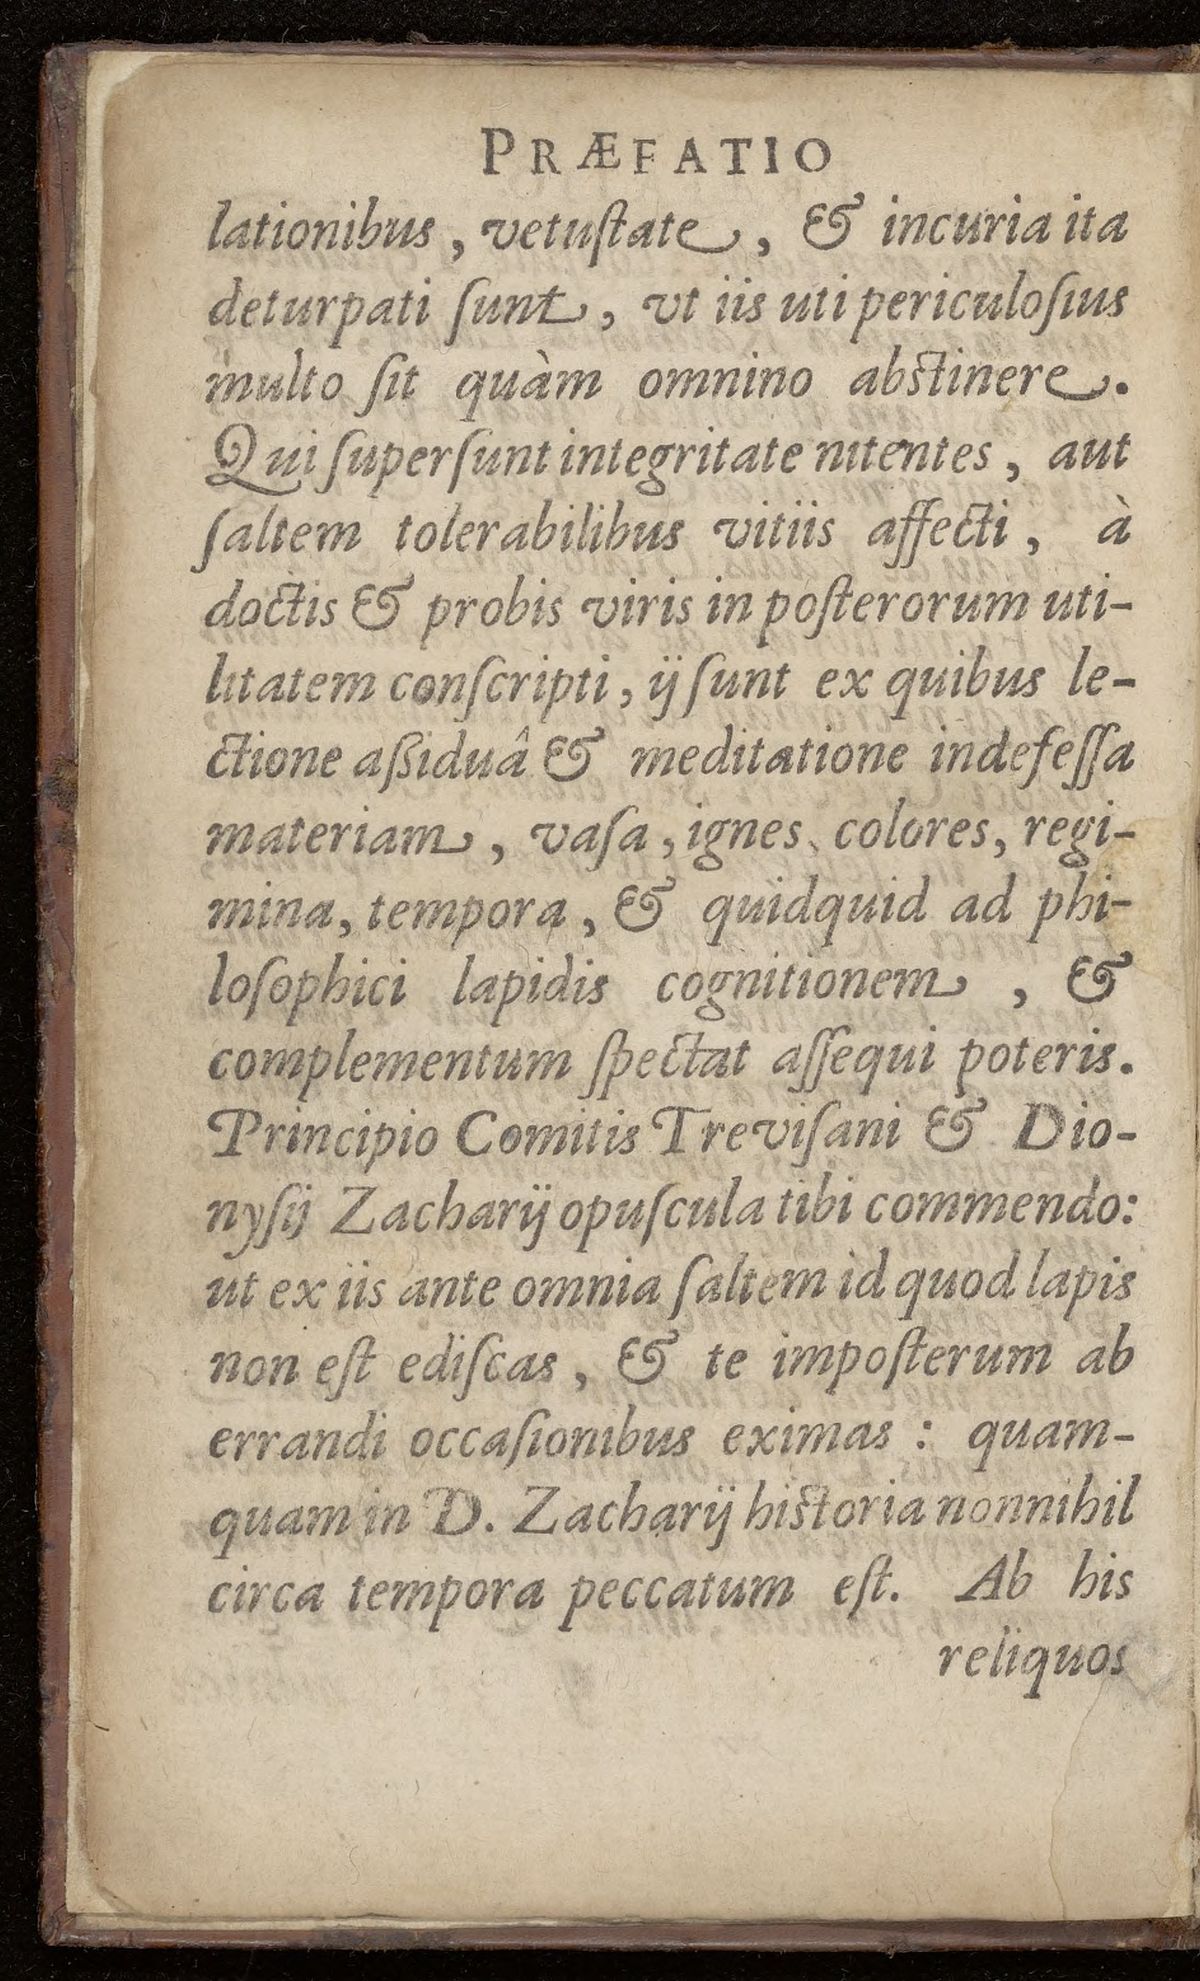 PRÆFATIO
lationibus, vetuſtate, & incuria ita
deturpati ſunt, vt iis uti periculoſius
multo ſit quàm omnino abſtinere.
Qui ſuperſunt integritate nitentes, aut
ſaltem tolerabilibus vitiis affecti, à
doctis & probis viris in poſterorum uti-
litatem conſcripti, ij ſunt ex quibus le-
ctione aſſiduâ & meditatione indefeſſa
materiam, vaſa, ignes, colores, regi-
mina, tempora, & quidquid ad phi-
loſophici lapidis cognitionem, &
complementum ſpectat aſſequi poteris.
Principio Comitis Treviſani & Dio-
nyſij Zacharij opuſcula tibi commendo:
ut ex iis ante omnia ſaltem id quod lapis
non eſt ediſcas, & te impoſterum ab
errandi occaſionibus eximas: quam-
quam in D. Zacharij hiſtoria nonnihil
circa tempora peccatum eſt. Ab his
reliquos